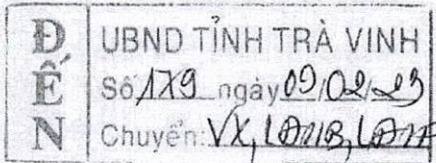 ĐẾN
UBND TỈNH TRÀ VINH
Số 179 ngày 09/02/23
Chuyển: VX,